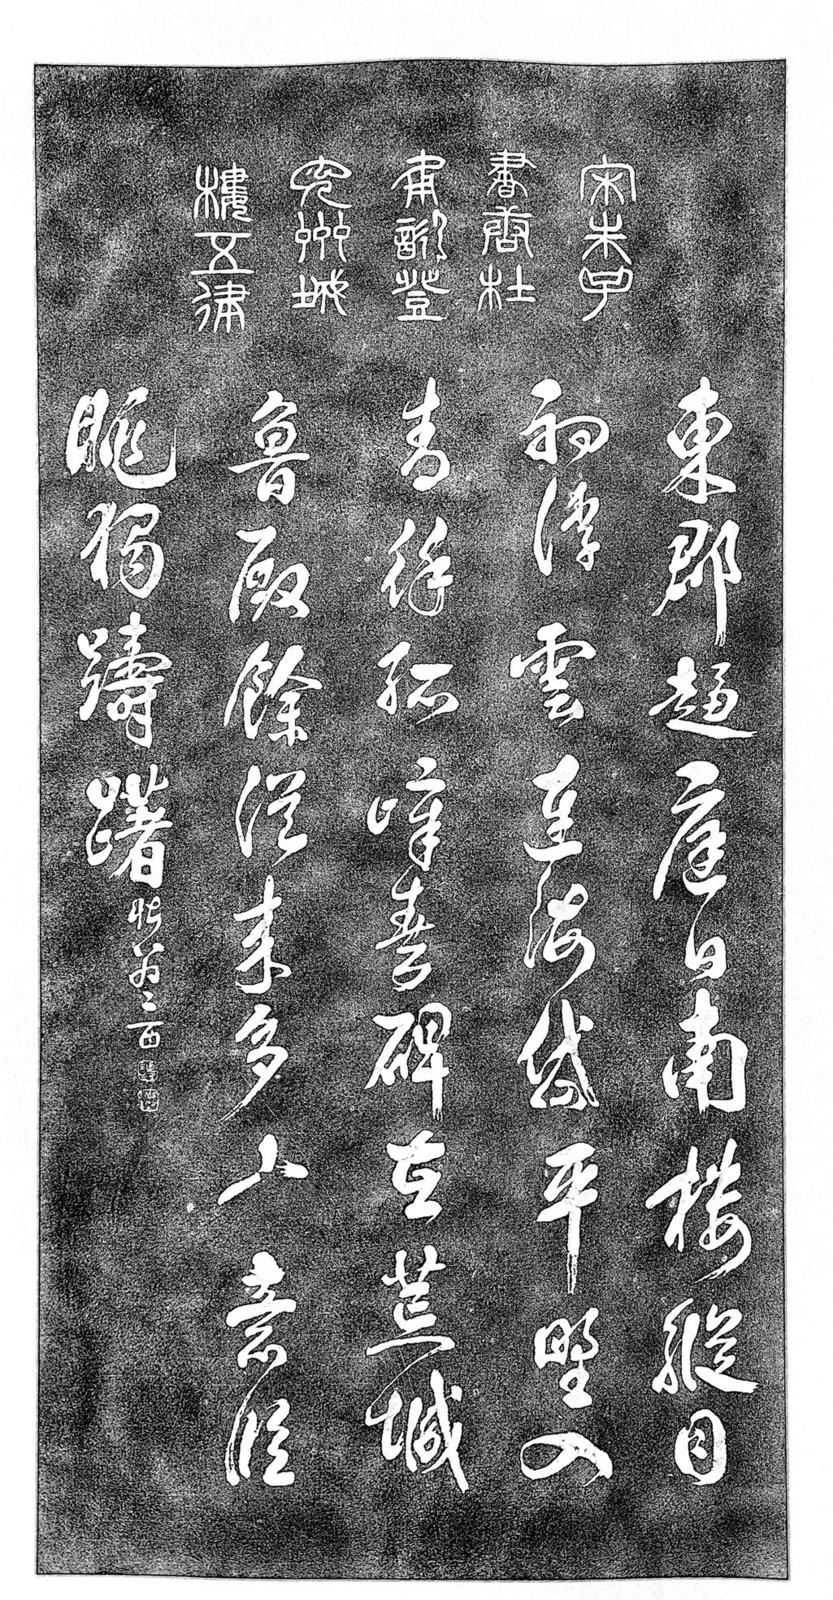 宋朱子
書唐杜
甫登
兗州城
樓五律
東郡趨庭日南樓縱目
初浮雲連海岱平野入
青徐孤嶂秦碑在荒城
魯殿餘從來多古意臨
眺獨躊躇
晦翁